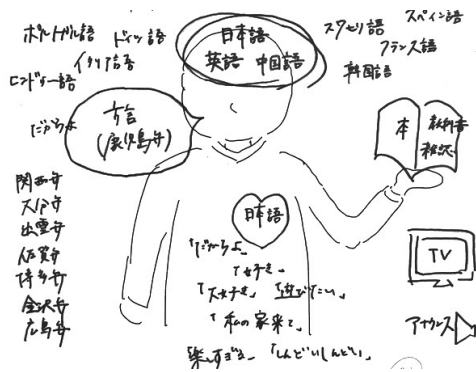 ポルトガル語
ドイツ語
イタリア語
日本語
英語 中国語
スワヒリ語
スペイン語
フランス語
韓国語
だからよ
方言
(鹿児島弁)
本
教科書
雑誌
関西弁
大分弁
出雲弁
佐賀弁
博多弁
金沢弁
広島弁
日本語
「だからよ」
「好き」
「大好き」 「遊びたい」
「私の家来て」
楽しすぎる 「しんどいしんどい」
TV
アナウンス